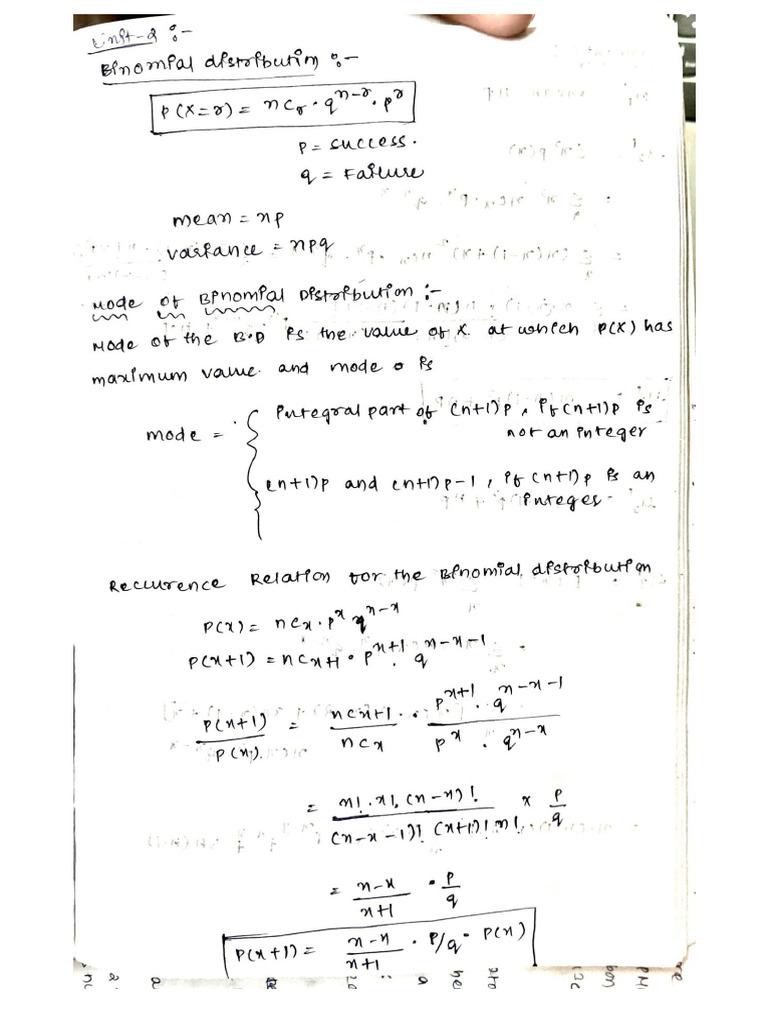 Unit-2 :-
Binomial distribution :-
P(X=r) = nCr · q^(n-r) · p^r
P = success.
q = Failure
mean = np
variance = npq
Mode of Binomial Distribution :-
Mode of the B.D is the value of x at which P(x) has
maximum value and mode is
mode = { Integral part of (n+1)p, if (n+1)p is
not an integer
(n+1)p and (n+1)p-1, if (n+1)p is an
integer.
Reccurence Relation for the Binomial distribution
P(x) = nCx · p^x q^(n-x)
P(x+1) = nCx+1 · p^(x+1) · q^(n-x-1)
P(x+1)/P(x) = nCx+1/nCx · p^(x+1) · q^(n-x-1) / p^x · q^(n-x)
= n! · x! (n-x)! / (n-x-1)! (x+1)! n! × p/q
= n-x/x+1 · p/q
P(x+1) = n-x/x+1 · p/q · P(x)